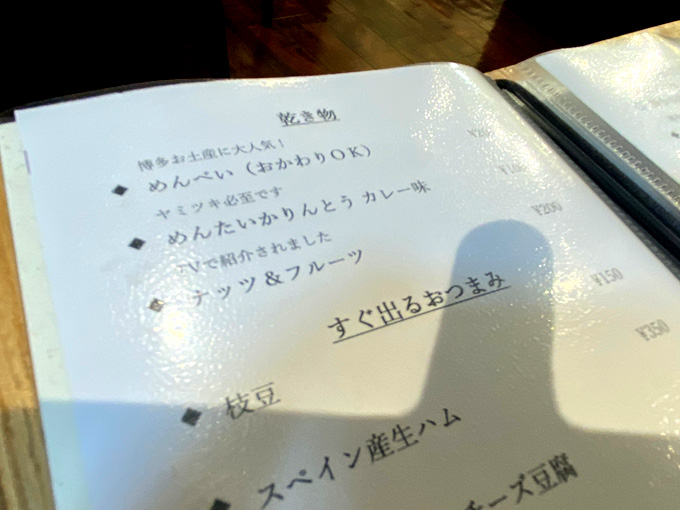 乾き物
博多お土産に大人気！
◆ めんべい（おかわりＯＫ）
ヤミツキ必至です
◆ めんたいかりんとう カレー味
TVで紹介されました
¥200
◆ ナッツ＆フルーツ
すぐ出るおつまみ
¥150
◆ 枝豆
¥350
◆ スペイン産生ハム
チーズ豆腐